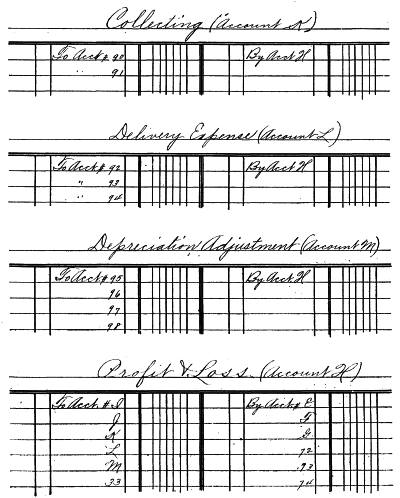 Collecting (Account K)
To Acct # 90 By Acct H
" 91
Delivery Expense (Account L)
To Acct # 92 By Acct H
" 93
" 94
Depreciation Adjustment (Account M)
To Acct # 95 By Acct. H
96
97
98
Profit & Loss (Account H)
To Acct. # I By Acct # E
J F
K G
L 72
M 73
33 74